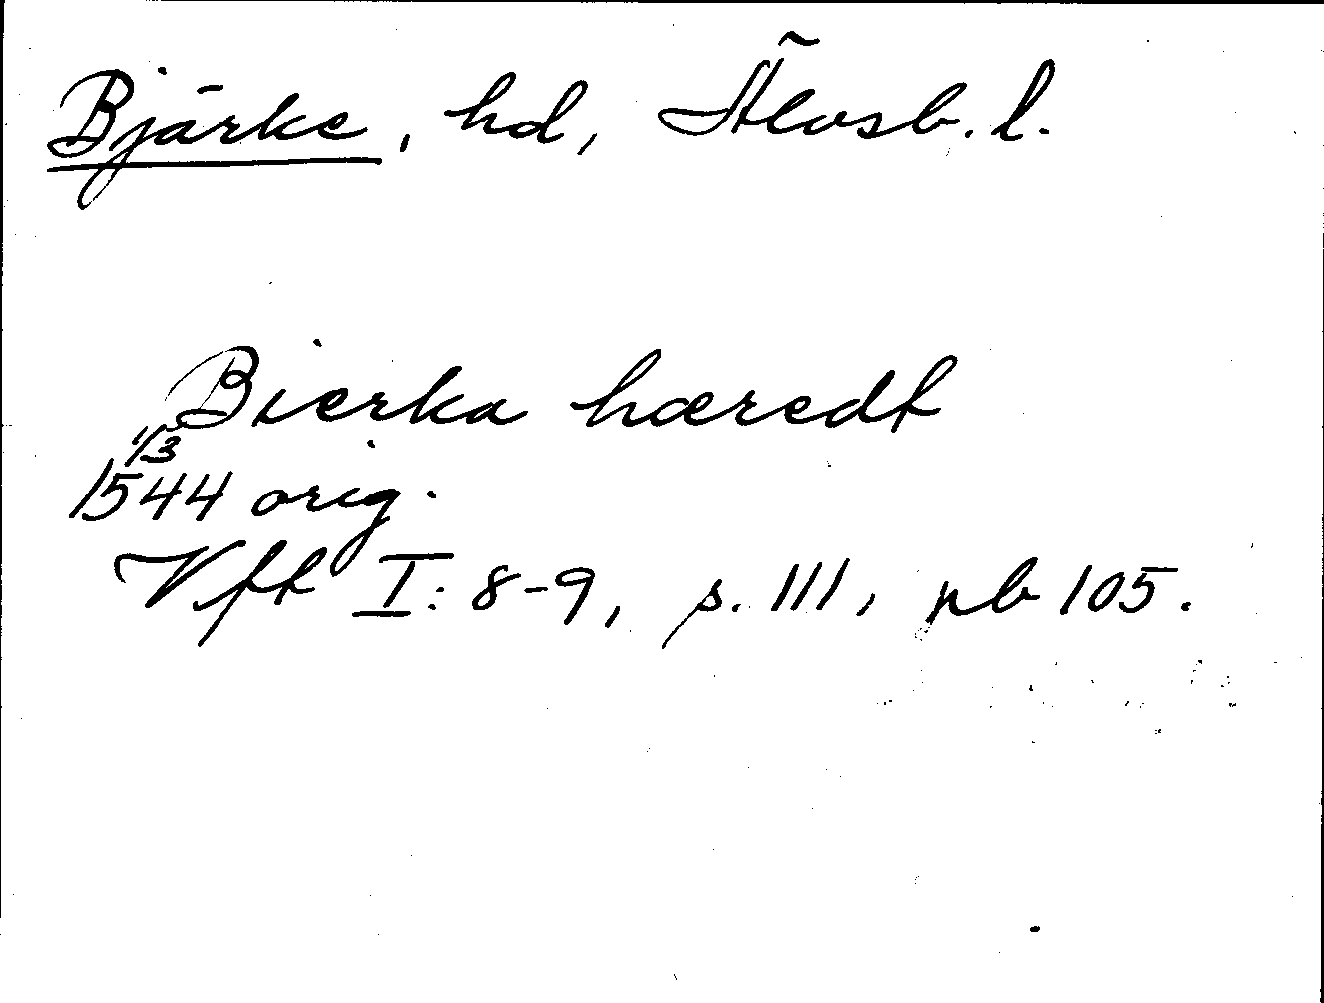 Bjärke, hd, Älvsb. l.
Bierka hæredt
1/3
1544 orig.
Vft I: 8-9, s. 111, nb 105.